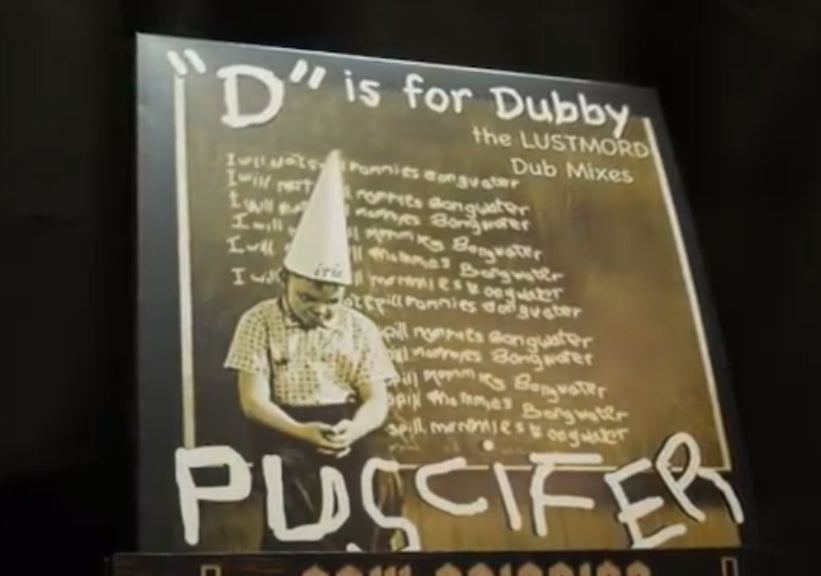 "D" is for Dubby
the LUSTMORD
Dub Mixes
I will not spill mommies Bongwater
I will not spill mommies Bongwater
I will mommies Bongwater
I will spill mommies Bongwater
I will spill mommies Bongwater
I will mommies Bongwater
irie
not spill mommies Bongwater
spill mommies Bongwater
spill mommies Bongwater
spill mommies Bongwater
spill mommies Bongwater
spill mommies Bongwater
PUSCIFER